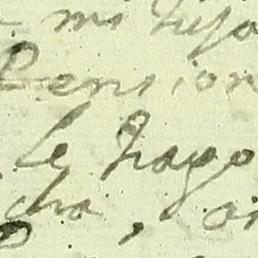 mi hija
Pension
le hago
cha, o